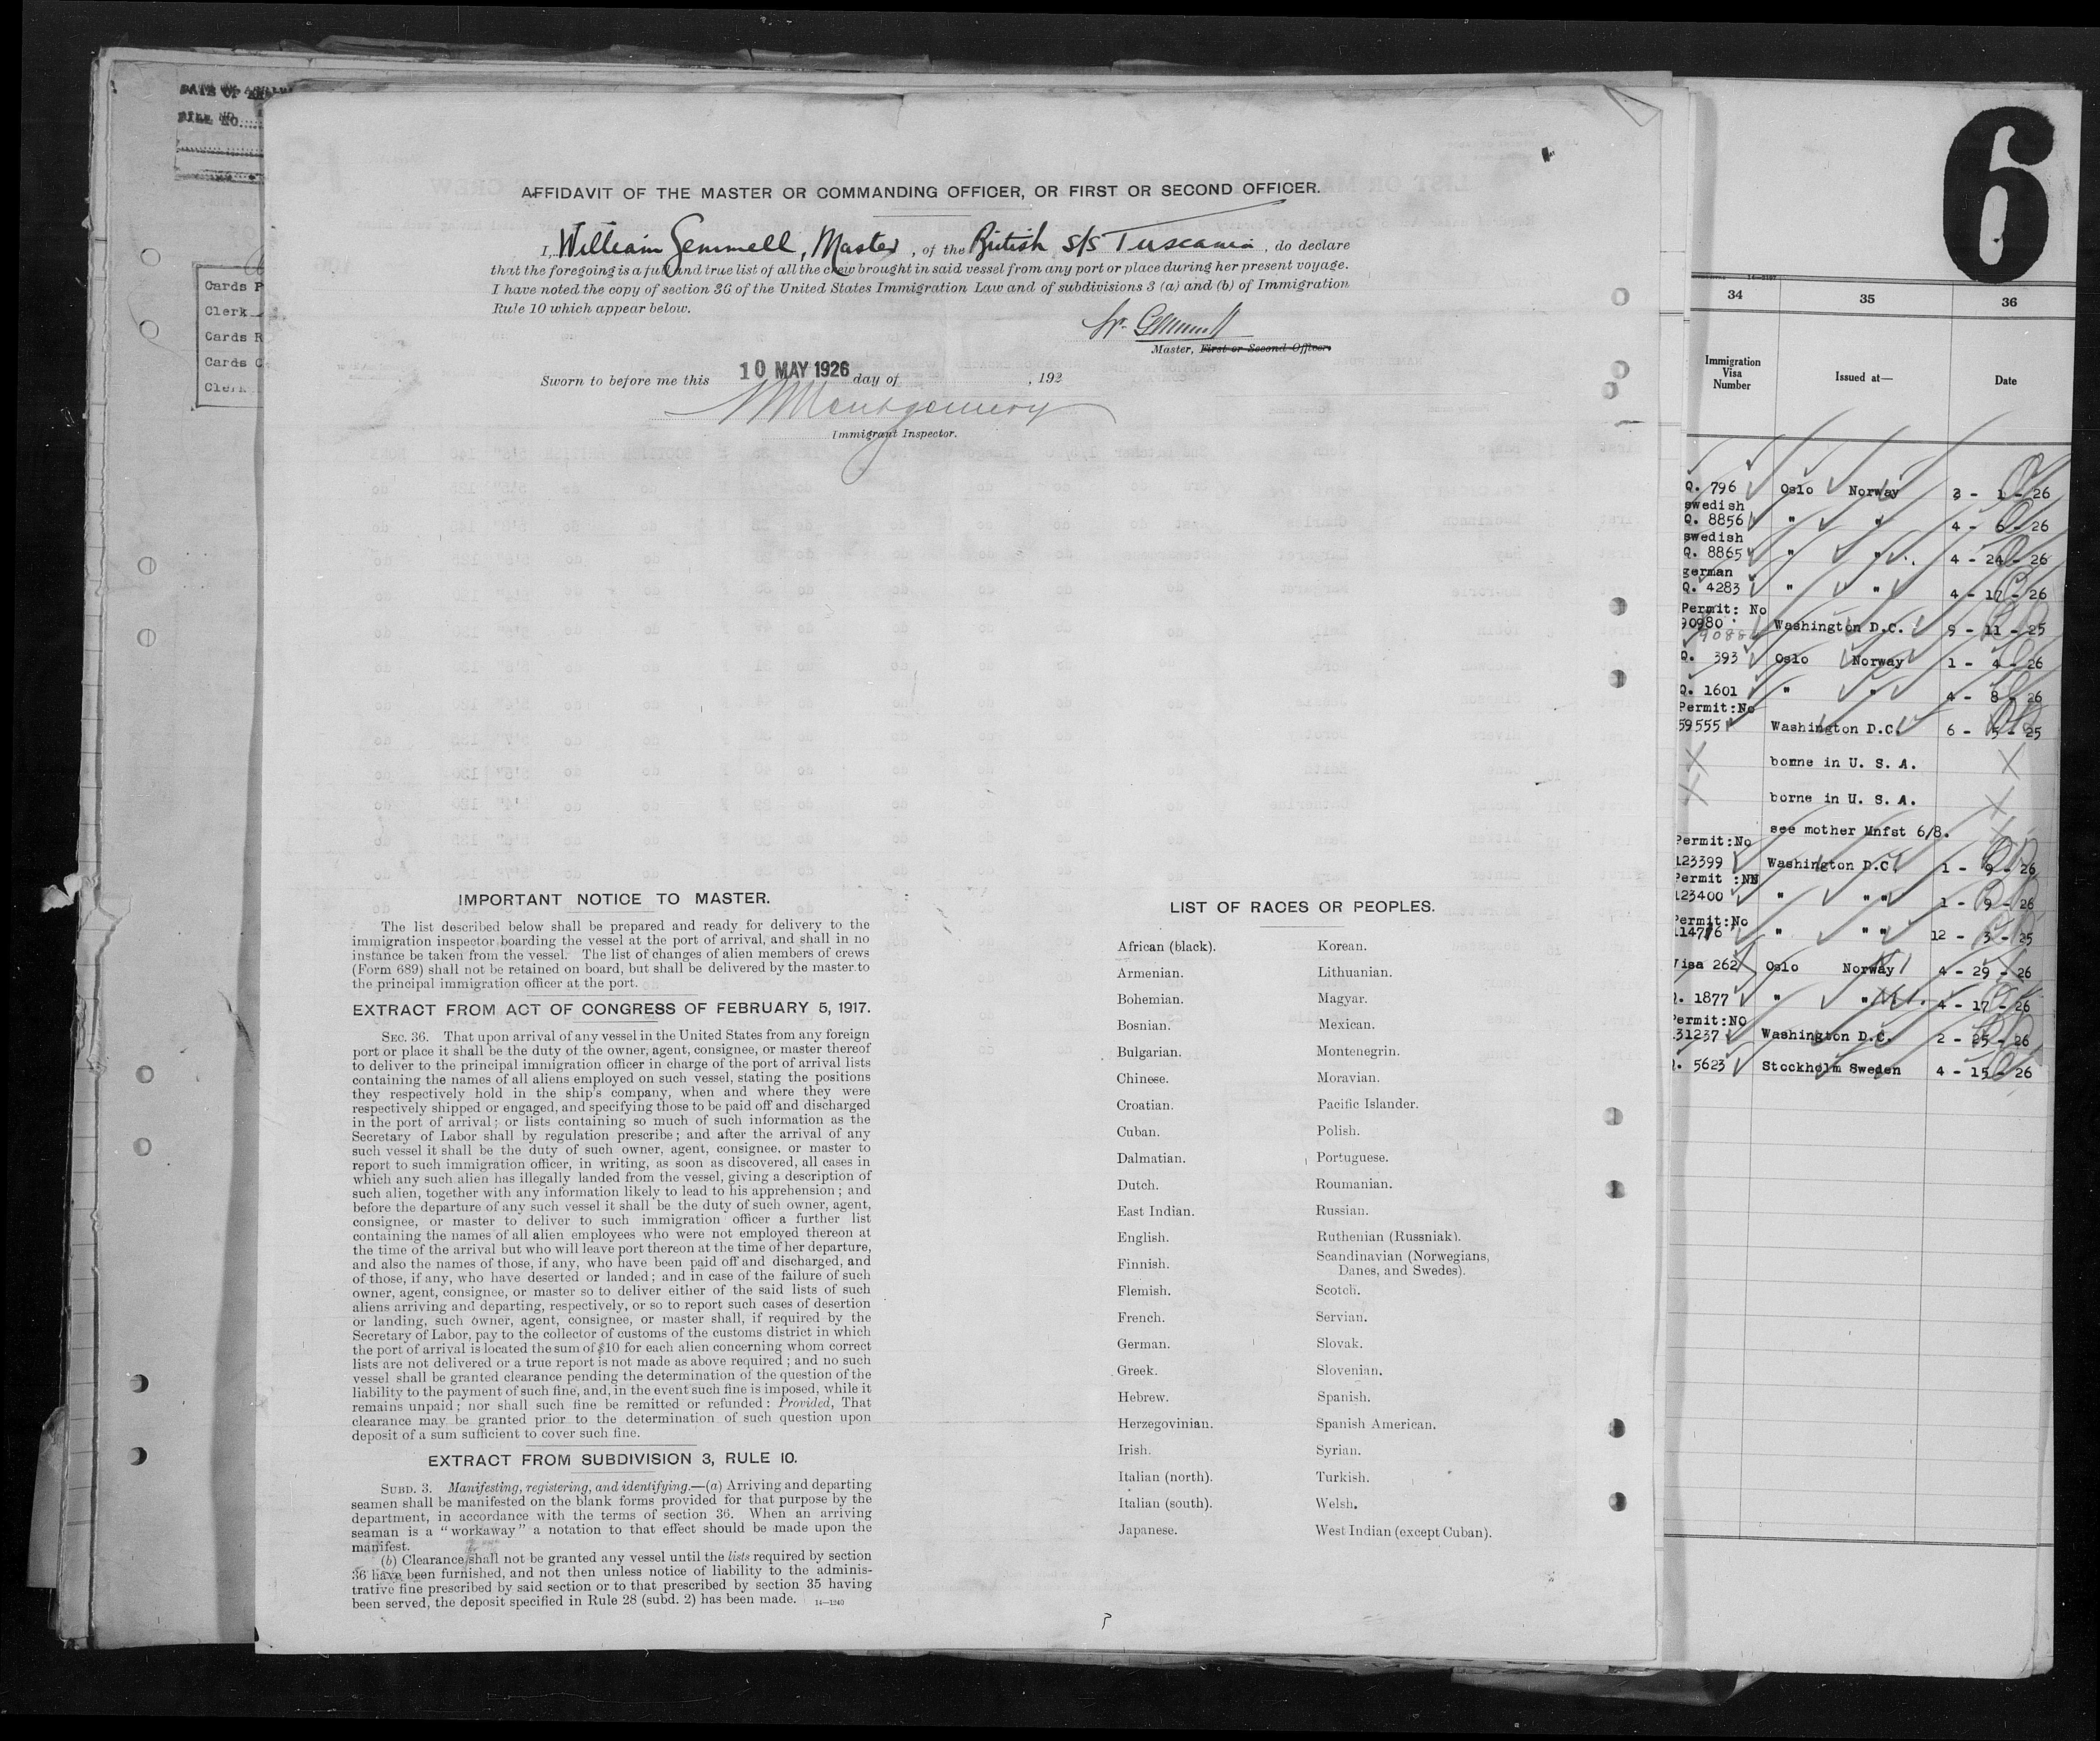 DATE OF
FILE NO.
Cards P
Clerk
Cards R
Cards C
Clerk
AFFIDAVIT OF THE MASTER OR COMMANDING OFFICER, OR FIRST OR SECOND OFFICER.
I, William Gemmell, Master, of the British s/s Tuscania, do declare
that the foregoing is a full and true list of all the crew brought in said vessel from any port or place during her present voyage.
I have noted the copy of section 36 of the United States Immigration Law and of subdivisions 3 (a) and (b) of Immigration
Rule 10 which appear below.
W. Gemmell
Master, First or Second Officer.
Sworn to before me this 10 MAY 1926 day of , 192
Montgomery
Immigrant Inspector.
IMPORTANT NOTICE TO MASTER.
The list described below shall be prepared and ready for delivery to the
immigration inspector boarding the vessel at the port of arrival, and shall in no
instance be taken from the vessel. The list of changes of alien members of crews
(Form 689) shall not be retained on board, but shall be delivered by the master to
the principal immigration officer at the port.
EXTRACT FROM ACT OF CONGRESS OF FEBRUARY 5, 1917.
SEC. 36. That upon arrival of any vessel in the United States from any foreign
port or place it shall be the duty of the owner, agent, consignee, or master thereof
to deliver to the principal immigration officer in charge of the port of arrival lists
containing the names of all aliens employed on such vessel, stating the positions
they respectively hold in the ship's company, when and where they were
respectively shipped or engaged, and specifying those to be paid off and discharged
in the port of arrival; or lists containing so much of such information as the
Secretary of Labor shall by regulation prescribe; and after the arrival of any
such vessel it shall be the duty of such owner, agent, consignee, or master to
report to such immigration officer, in writing, as soon as discovered, all cases in
which any such alien has illegally landed from the vessel, giving a description of
such alien, together with any information likely to lead to his apprehension; and
before the departure of any such vessel it shall be the duty of such owner, agent,
consignee, or master to deliver to such immigration officer a further list
containing the names of all alien employees who were not employed thereon at
the time of the arrival but who will leave port thereon at the time of her departure,
and also the names of those, if any, who have been paid off and discharged, and
of those, if any, who have deserted or landed; and in case of the failure of such
owner, agent, consignee, or master so to deliver either of the said lists of such
aliens arriving and departing, respectively, or so to report such cases of desertion
or landing, such owner, agent, consignee, or master shall, if required by the
Secretary of Labor, pay to the collector of customs of the customs district in which
the port of arrival is located the sum of $10 for each alien concerning whom correct
lists are not delivered or a true report is not made as above required; and no such
vessel shall be granted clearance pending the determination of the question of the
liability to the payment of such fine, and, in the event such fine is imposed, while it
remains unpaid; nor shall such fine be remitted or refunded: Provided, That
clearance may be granted prior to the determination of such question upon
deposit of a sum sufficient to cover such fine.
EXTRACT FROM SUBDIVISION 3, RULE 10.
SUBD. 3. Manifesting, registering, and identifying.—(a) Arriving and departing
seamen shall be manifested on the blank forms provided for that purpose by the
department, in accordance with the terms of section 36. When an arriving
seaman is a "workaway" a notation to that effect should be made upon the
manifest.
(b) Clearance shall not be granted any vessel until the lists required by section
36 have been furnished, and not then unless notice of liability to the adminis-
trative fine prescribed by said section or to that prescribed by section 35 having
been served, the deposit specified in Rule 28 (subd. 2) has been made. 14—1240
LIST OF RACES OR PEOPLES.
African (black). Korean.
Armenian. Lithuanian.
Bohemian. Magyar.
Bosnian. Mexican.
Bulgarian. Montenegrin.
Chinese. Moravian.
Croatian. Pacific Islander.
Cuban. Polish.
Dalmatian. Portuguese.
Dutch. Roumanian.
East Indian. Russian.
English. Ruthenian (Russniak).
Finnish. Scandinavian (Norwegians,
Danes, and Swedes).
Flemish. Scotch.
French. Servian.
German. Slovak.
Greek. Slovenian.
Hebrew. Spanish.
Herzegovinian. Spanish American.
Irish. Syrian.
Italian (north). Turkish.
Italian (south). Welsh.
Japanese. West Indian (except Cuban).
6
34 35 36
Immigration
Visa
Number
Issued at— Date
Q. 796 Oslo Norway 3 - 1 - 26
swedish
Q. 8856 " " 4 - 6 - 26
swedish
Q. 8865 " " 4 - 24 - 26
german
Q. 4283 " " 4 - 17 - 26
Permit: No
90980 Washington D.C. 9 - 11 - 25
Q. 393 Oslo Norway 1 - 4 - 26
Q. 1601 " " 4 - 8 - 26
Permit:No
59555 Washington D.C. 6 - 5 - 25
X borne in U. S. A. X
X borne in U. S. A. X
see mother Mnfst 6/8.
Permit:No
123399 Washington D.C. 1 - 9 - 26
Permit :NN
123400 " " " 1 - 9 - 26
Permit:No
114776 " " " 12 - 3 - 25
Visa 262 Oslo Norway 4 - 29 - 26
Q. 1877 " " 4 - 17 - 26
Permit:NO
131237 Washington D.C. 2 - 25 - 26
Q. 5623 Stockholm Sweden 4 - 15 - 26